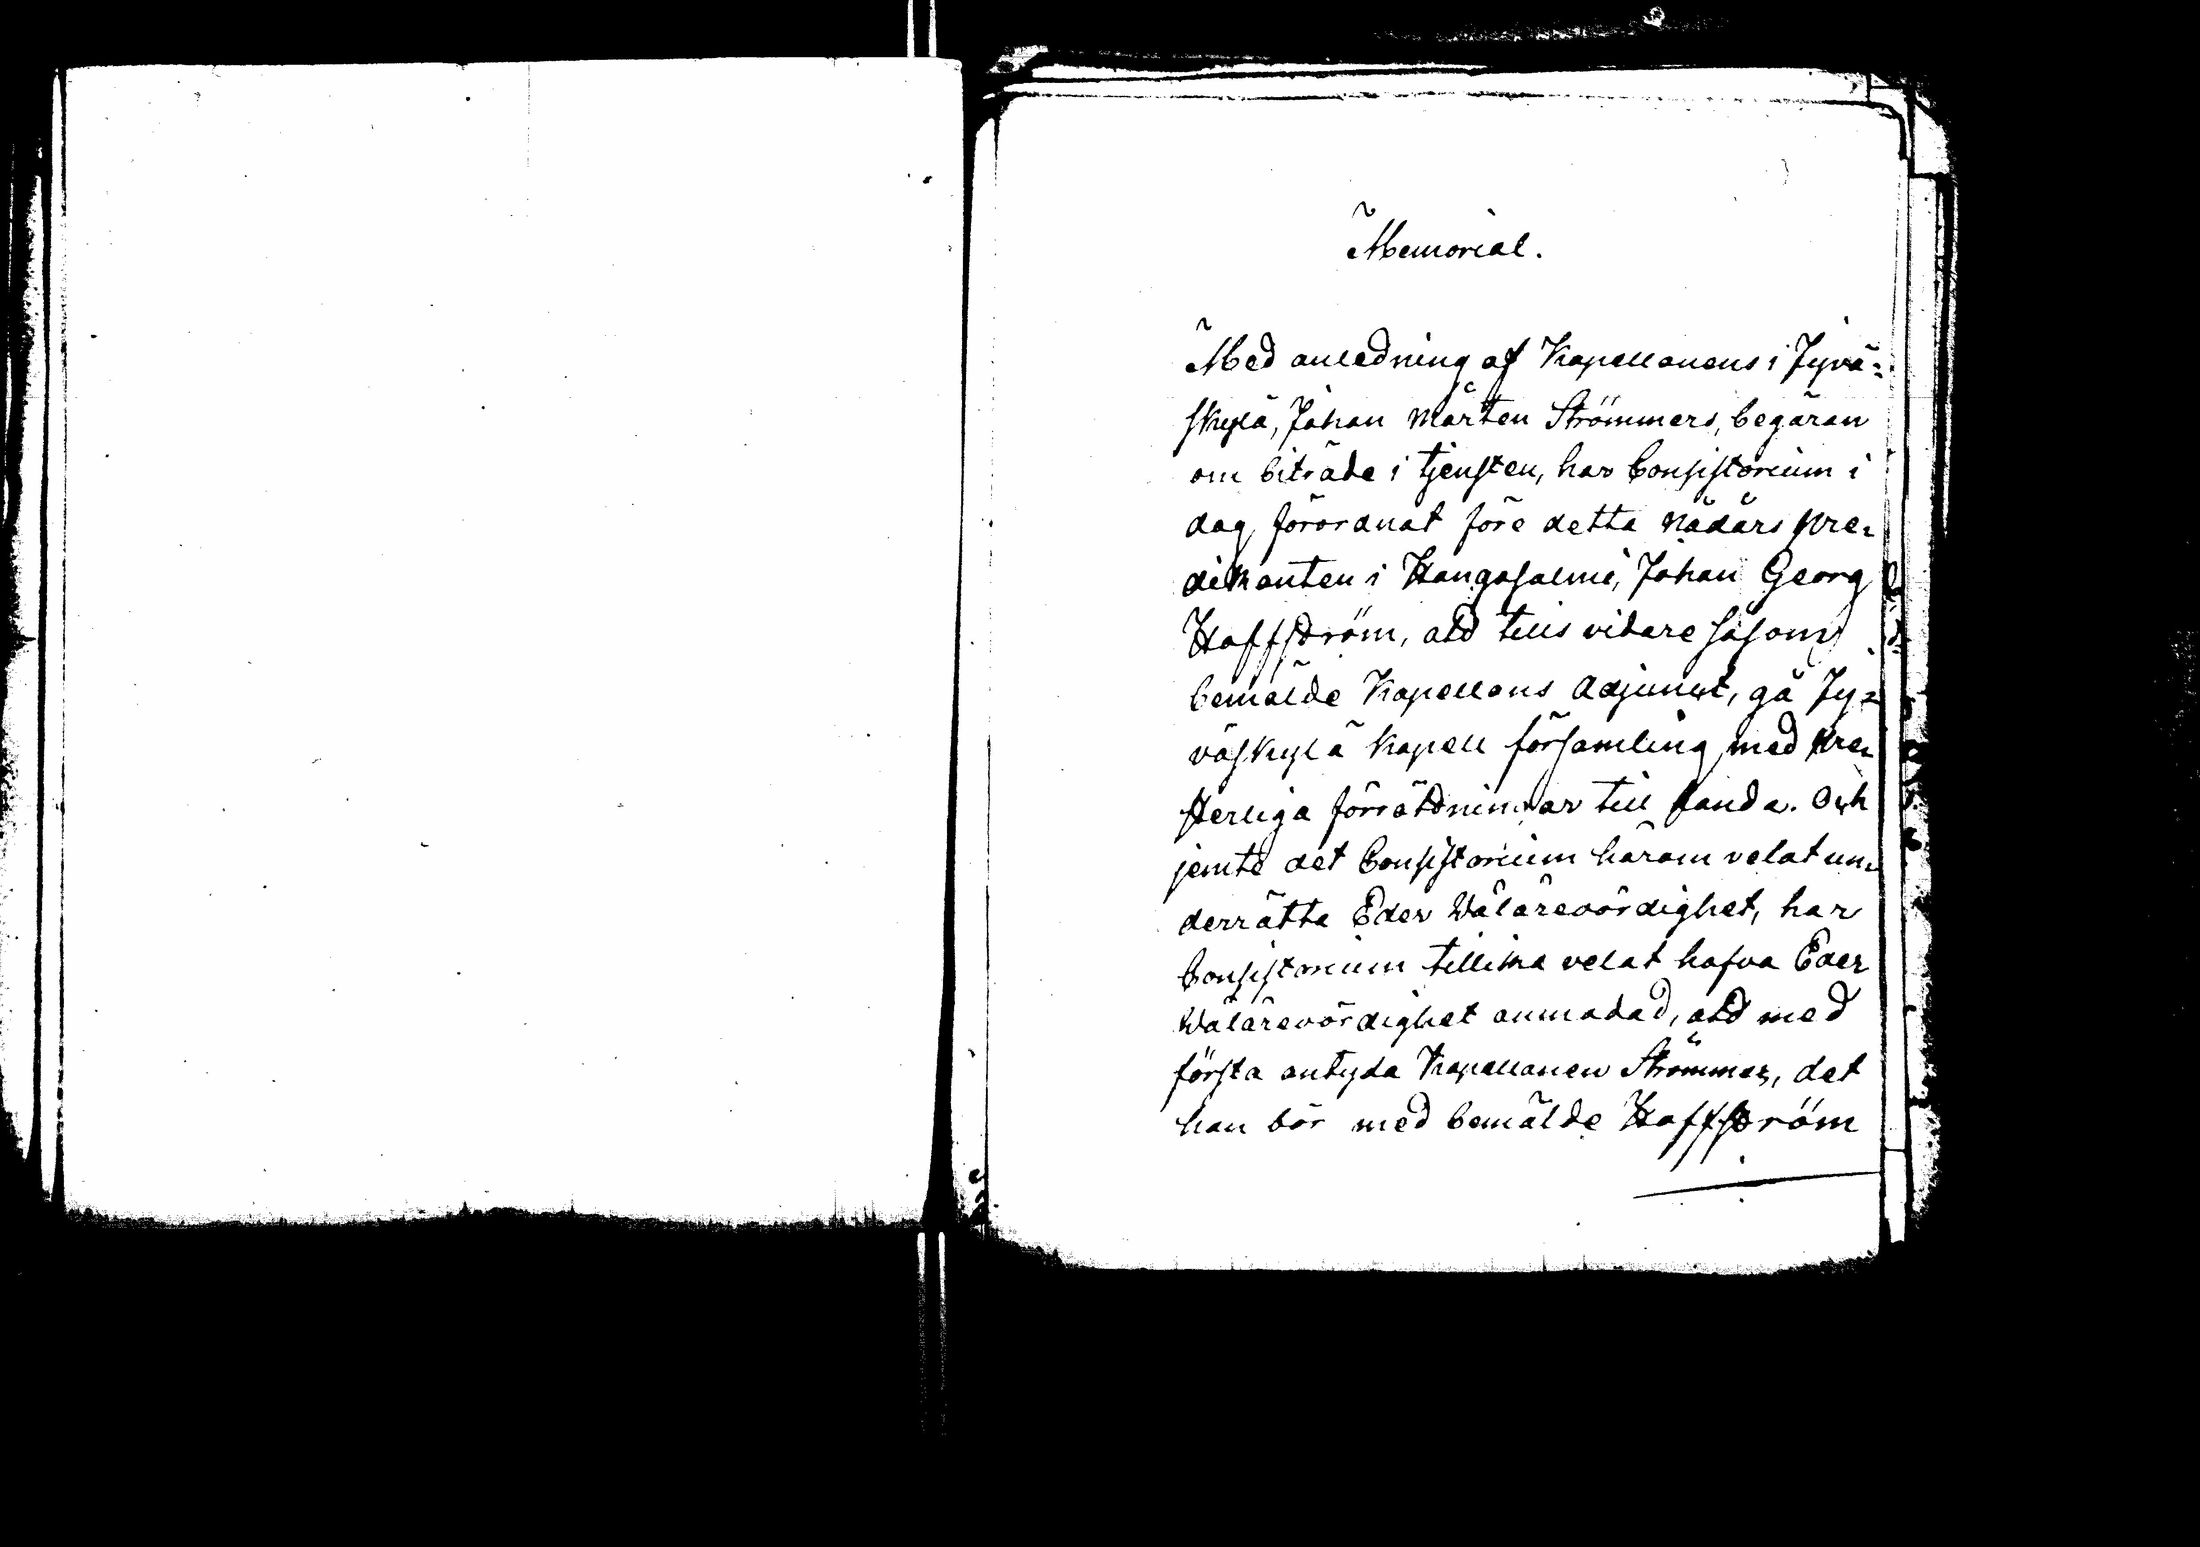 Memorial.
Med anledning af Kapellanens i Jyvä=
skylä, Johan Mårten Strömmers, begäran
om biträde i tjensten, har Consistorium i
dag förordnat före detta Nådårs pre=
dikanten i Kangasalmi, Johan Georg
Haffström, att tills vidare såsom
bemälde Kapellans Adjunct, gå Jy=
väskylä Kapell församling med pre=
sterliga förrättningar till handa. Och
jemte det Consistorium härom velat un=
derrätta Eder Wälärevördighet, har
Consistorium tillika velat hafva Eder
Wälärevördighet anmodad, att med
första antyda Kapellanen Strömmer, det
han bör med bemälde Haffström